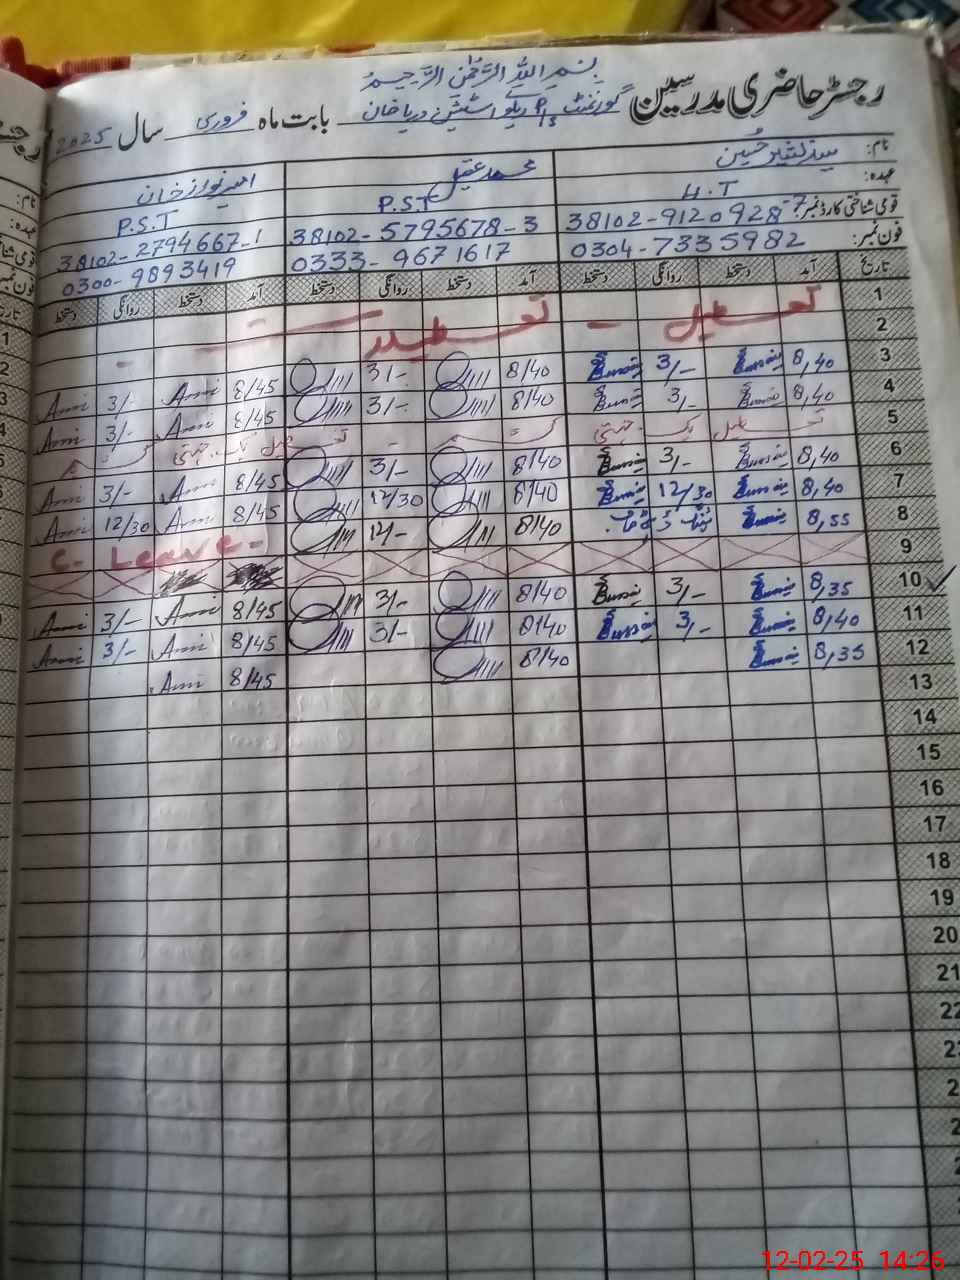 بسم اللہ الرحمٰن الرحیم
رجسٹر حاضری مدرسین گورنمنٹ P/S ریلوے اسٹیشن دریاخان بابت ماہ فروری سال 2025
نام: سید حسین محمد عقیل امیر نواز خان
عہدہ: H.T P.S.T P.S.T
قومی شناختی کارڈ نمبر: 38102-9120928-7 38102-5795678-3 38102-2794667-1
فون نمبر: 0304-7335982 0333-9671617 0300-9893419
تاریخ آمد دستخط روانگی دستخط آمد دستخط روانگی دستخط آمد دستخط روانگی دستخط
1
2 تعطیل
3 8,40 3/- 8/40 3/- 8/45 Ami 3/- Ami
4 8,40 3/- 8/40 3/- 8/45 Ami 3/- Ami
5 تعطیل
6 8,40 3/- 8/40 3/- 8/45 Ami 3/- Ami
7 8,40 12/30 8/40 12/30 8/45 Ami 12/30 Ami
8 8,55 8/40 12/- C- Leave-
9
10 8,35 3/- 8/40 3/- 8/45 Ami 3/- Ami
11 8,40 3/- 8/40 3/- 8/45 Ami 3/- Ami
12 8,35 8/40 8/45 Ami
13
14
15
16
17
18
19
20
21
22
12-02-25 14:26